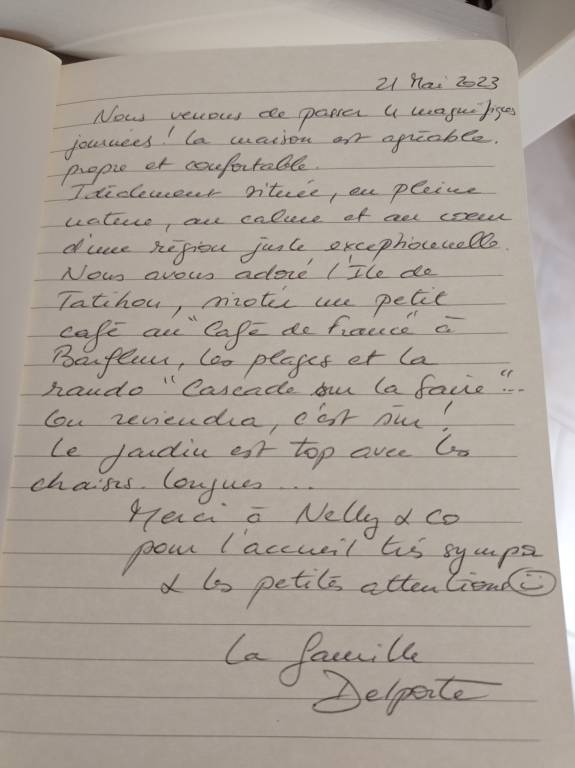 21 Mai 2023
Nous venons de passer 4 magnifiques
journées ! la maison est agréable.
propre et confortable.
Idéalement située, en pleine
nature, au calme et au coeur
d'une région juste exceptionnelle.
Nous avons adoré l'Ile de
Tatihou, siroter un petit
café au "Café de France" à
Barfleur, les plages et la
rando "Cascade sur la Saire"...
On reviendra, c'est sûr !
Le jardin est top avec les
chaises longues...
Merci à Nelly & co
pour l'accueil très sympa
& les petites attentions
La famille
Delporte